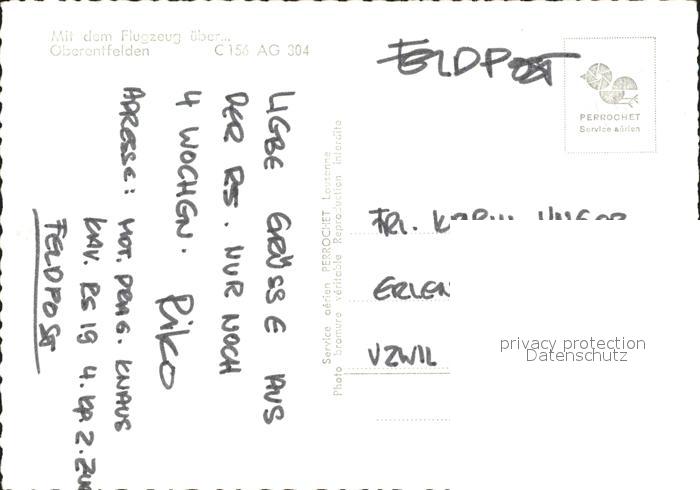 Mit dem Flugzeug über...
Oberentfelden C 156 AG 304
FELDPOST
PERROCHET
Service aérien
LIEBE GRÜSSE AUS
DER RS. NUR NOCH
4 WOCHEN.
Riko
ADRESSE: MOT. DRAG. KNAUS
KAV. RS 19 4. KP 2. ZUG
FELDPOST
Service aérien PERROCHET Lausanne
Photo bromure véritable Reproduction interdite
FRL.
UZWIL
privacy protection
Datenschutz